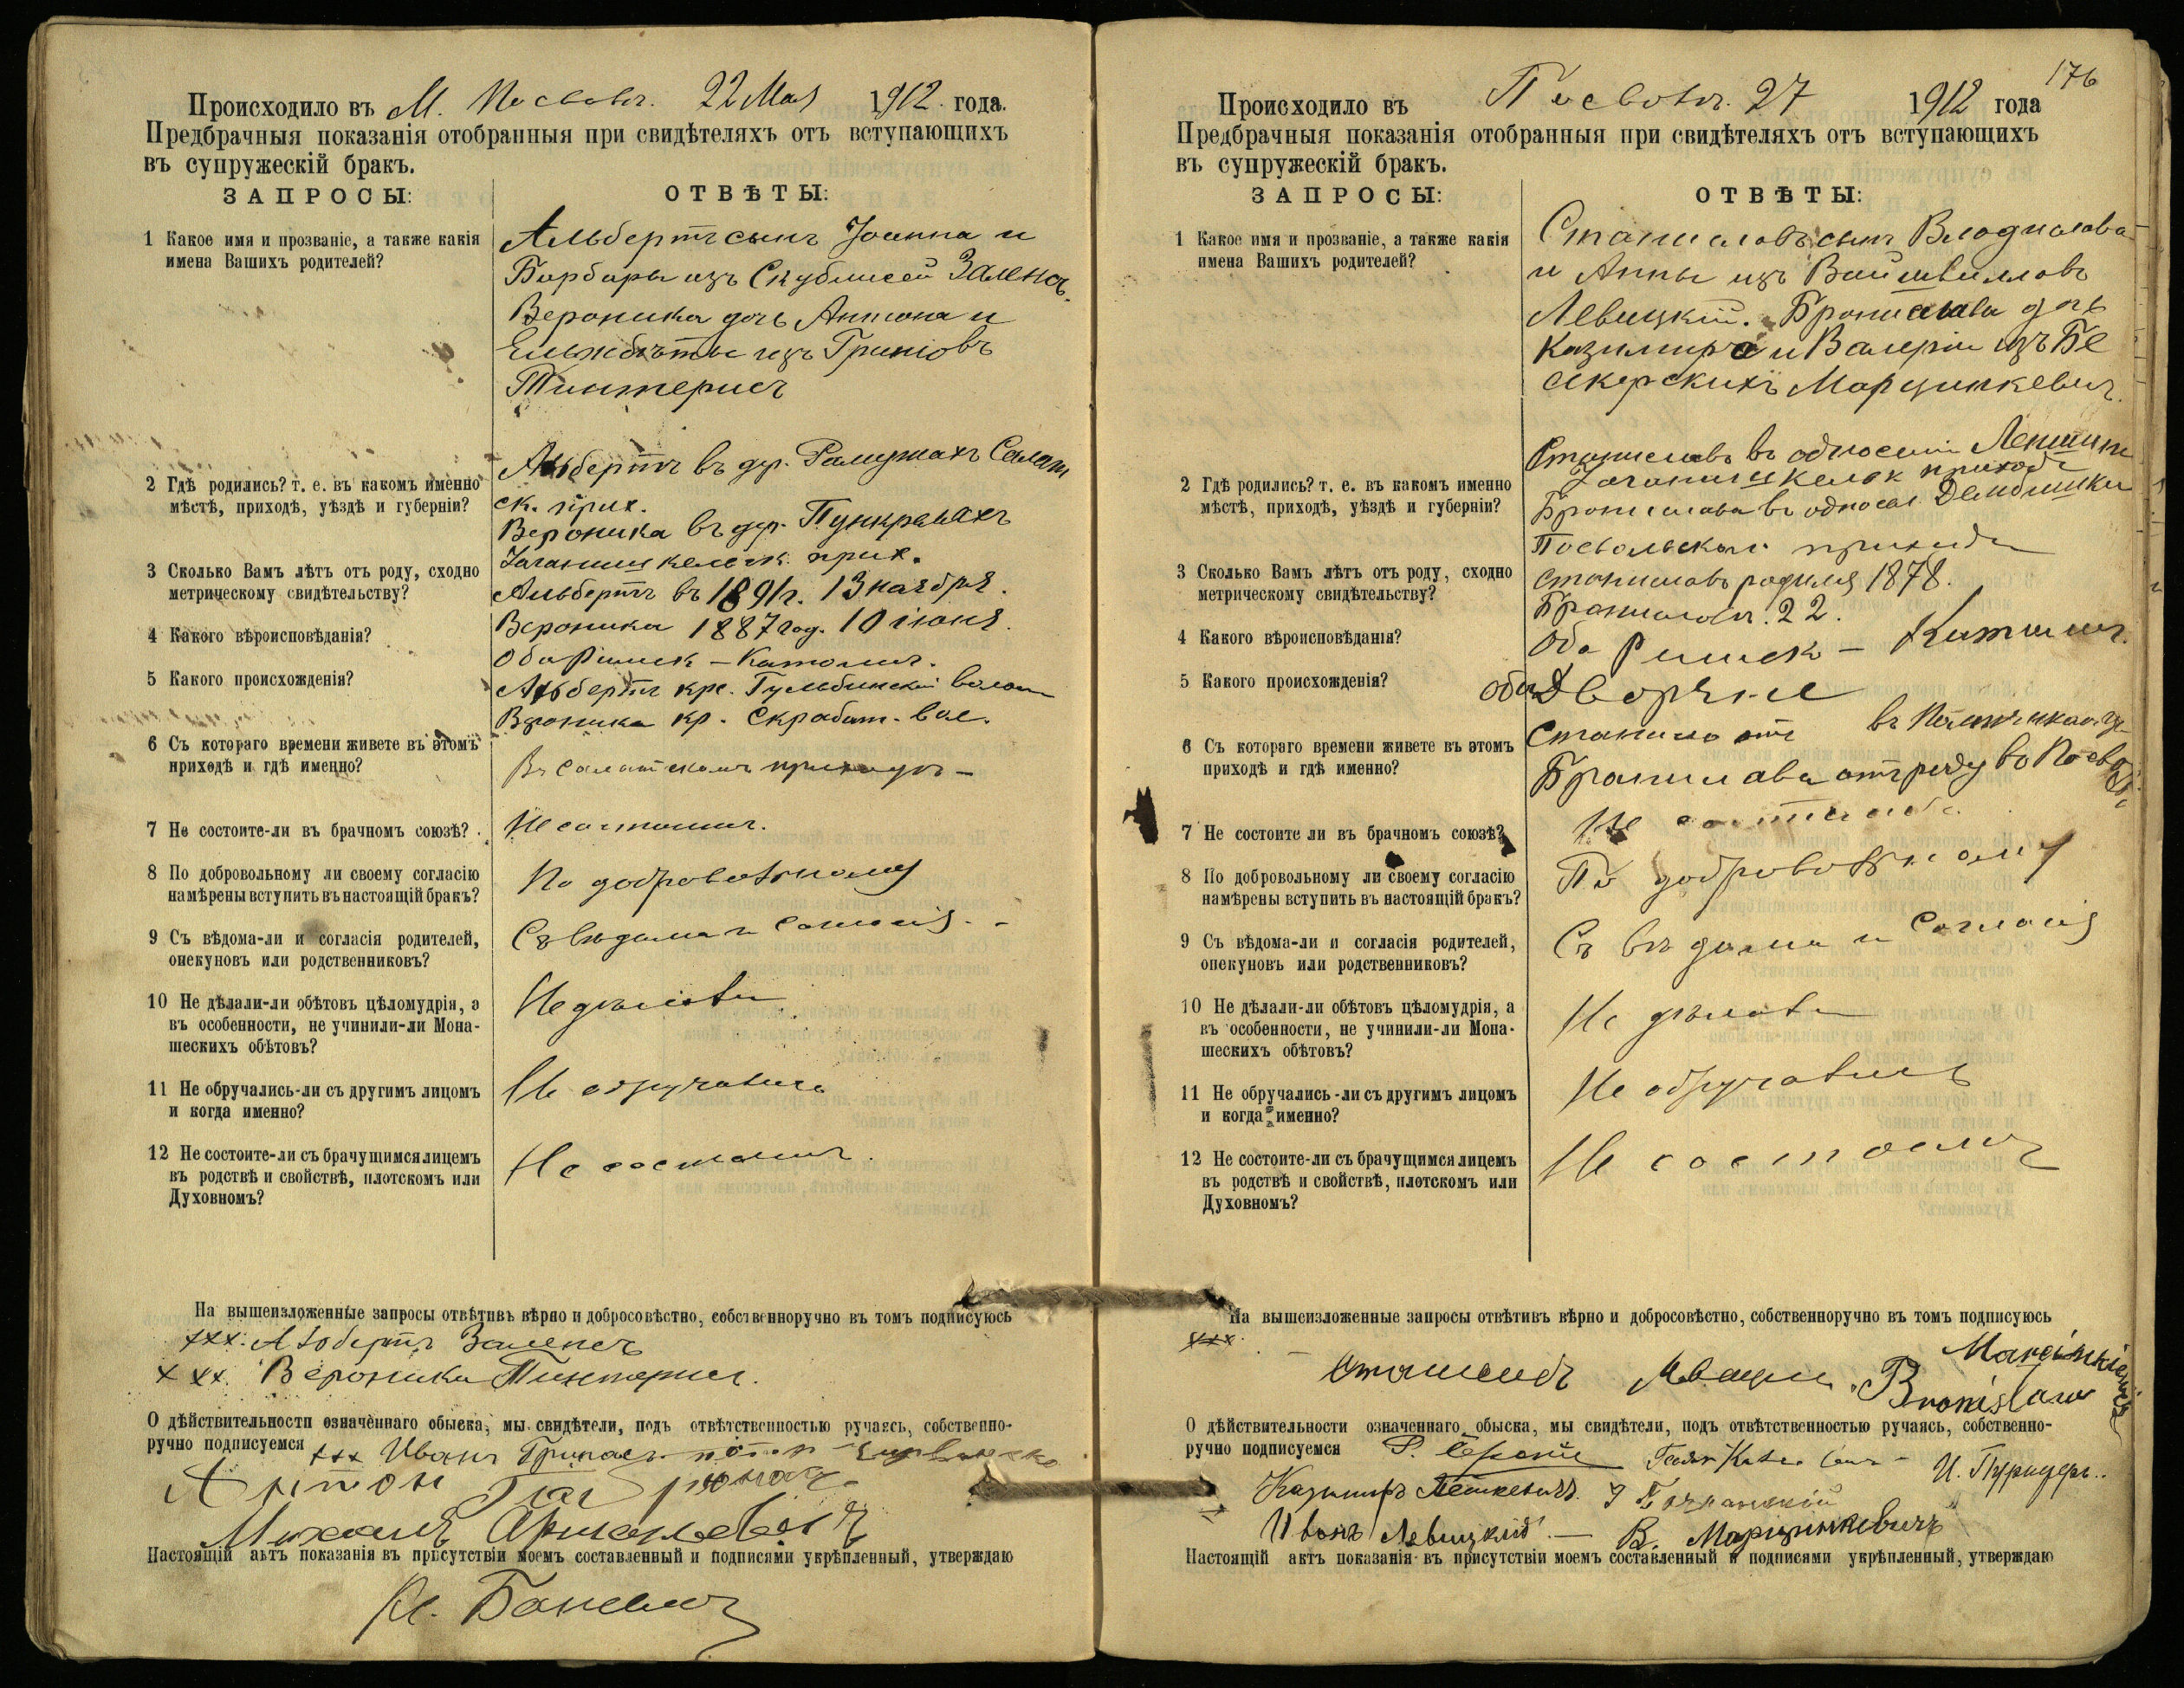 Происходило въ М. Посволь. 22 Мая 1912. года.
Предбрачныя показанія отобранныя при свидѣтеляхъ отъ вступающихъ
въ супружескій бракъ.
ЗАПРОСЫ: ОТВѢТЫ:
1 Какое имя и прозваніе, а также какія
имена Вашихъ родителей?
Альбертъ сынъ Іоанна и
Барбары изъ
Вероника дочь Антона и
изъ
Тинтерисъ
2 Гдѣ родились? т. е. въ какомъ именно
мѣстѣ, приходѣ, уѣздѣ и губерніи?
Альбертъ въ дер. Салат
ск. прих.
Вероника въ дер.
прих.
3 Сколько Вамъ лѣтъ отъ роду, сходно
метрическому свидѣтельству?
Альбертъ въ 1891г. 13 ноября.
Вероника 1887 год. 10 іюня.
4 Какого вѣроисповѣданія?
Оба Римск - Католич.
5 Какого происхожденія?
Альбертъ кре. волост
Вероника кр. Скрабат. вол.
6 Съ котораго времени живете въ этомъ
приходѣ и гдѣ именно?
Въ Салатскомъ приходѣ -
7 Не состоите-ли въ брачномъ союзѣ?
Не состоимъ.
8 По добровольному ли своему согласію
намѣрены вступить въ настоящій бракъ?
По добровольному
9 Съ вѣдома-ли и согласія родителей,
опекуновъ или родственниковъ?
Съ вѣдома и согласія -
10 Не дѣлали-ли обѣтовъ цѣломудрія, а
въ особенности, не учинили-ли Мона-
шескихъ обѣтовъ?
Не дѣлали
11 Не обручались-ли съ другимъ лицомъ
и когда именно?
Не обручались
12 Не состоите-ли съ брачущимся лицемъ
въ родствѣ и свойствѣ, плотскомъ или
Духовномъ?
Не состоимъ.
На вышеизложенные запросы отвѣтивъ вѣрно и добросовѣстно, собственноручно въ томъ подписуюсь
xxx. Альбертъ Заленсъ
xxx. Вероника Тинтерисъ.
О дѣйствительности означеннаго обыска, мы свидѣтели, подъ отвѣтственностью ручаясь, собственно-
ручно подписуемся xxx Иванъ
Антон
Михаилъ
Настоящій актъ показанія въ присутствіи моемъ составленный и подписями укрѣпленный, утверждаю
Кс. Баневичъ
176
Происходило въ Посволь. 27 1912 года
Предбрачныя показанія отобранныя при свидѣтеляхъ отъ вступающихъ
въ супружескій бракъ.
ЗАПРОСЫ: ОТВѢТЫ:
1 Какое имя и прозваніе, а также какія
имена Вашихъ родителей?
Станиславъ сынъ Владислава
и Анны изъ Войшвилловъ
Левицкій. Бронислава дочь
Казимира и Валеріи изъ Бе
Марцинкевичъ.
2 Гдѣ родились? т. е. въ какомъ именно
мѣстѣ, приходѣ, уѣздѣ и губерніи?
Станиславъ въ
прихода
Бронислава въ
Посвольскаго прихода
3 Сколько Вамъ лѣтъ отъ роду, сходно
метрическому свидѣтельству?
Станиславъ родился 1878.
Бронислава. 22.
4 Какого вѣроисповѣданія?
Оба Римск - Католич.
5 Какого происхожденія?
оба Дворяне
6 Съ котораго времени живете въ этомъ
приходѣ и гдѣ именно?
Станисл
Бронислава отъ роду въ Посволѣ
7 Не состоите ли въ брачномъ союзѣ?
Не
8 По добровольному ли своему согласію
намѣрены вступить въ настоящій бракъ?
По добровольному
9 Съ вѣдома-ли и согласія родителей,
опекуновъ или родственниковъ?
Съ вѣдома и согласія
10 Не дѣлали-ли обѣтовъ цѣломудрія, а
въ особенности, не учинили-ли Мона-
шескихъ обѣтовъ?
Не дѣлали
11 Не обручались-ли съ другимъ лицомъ
и когда именно?
Не обручались
12 Не состоите-ли съ брачущимся лицемъ
въ родствѣ и свойствѣ, плотскомъ или
Духовномъ?
Не состоимъ
На вышеизложенные запросы отвѣтивъ вѣрно и добросовѣстно, собственноручно въ томъ подписуюсь
xxx.
Marcinkiewicz
Bronisława
О дѣйствительности означеннаго обыска, мы свидѣтели, подъ отвѣтственностью ручаясь, собственно-
ручно подписуемся
Казимиръ Петкевичъ.
Иванъ Левицкій. - В. Марцинкевичъ
Настоящій актъ показанія въ присутствіи моемъ составленный и подписями укрѣпленный, утверждаю